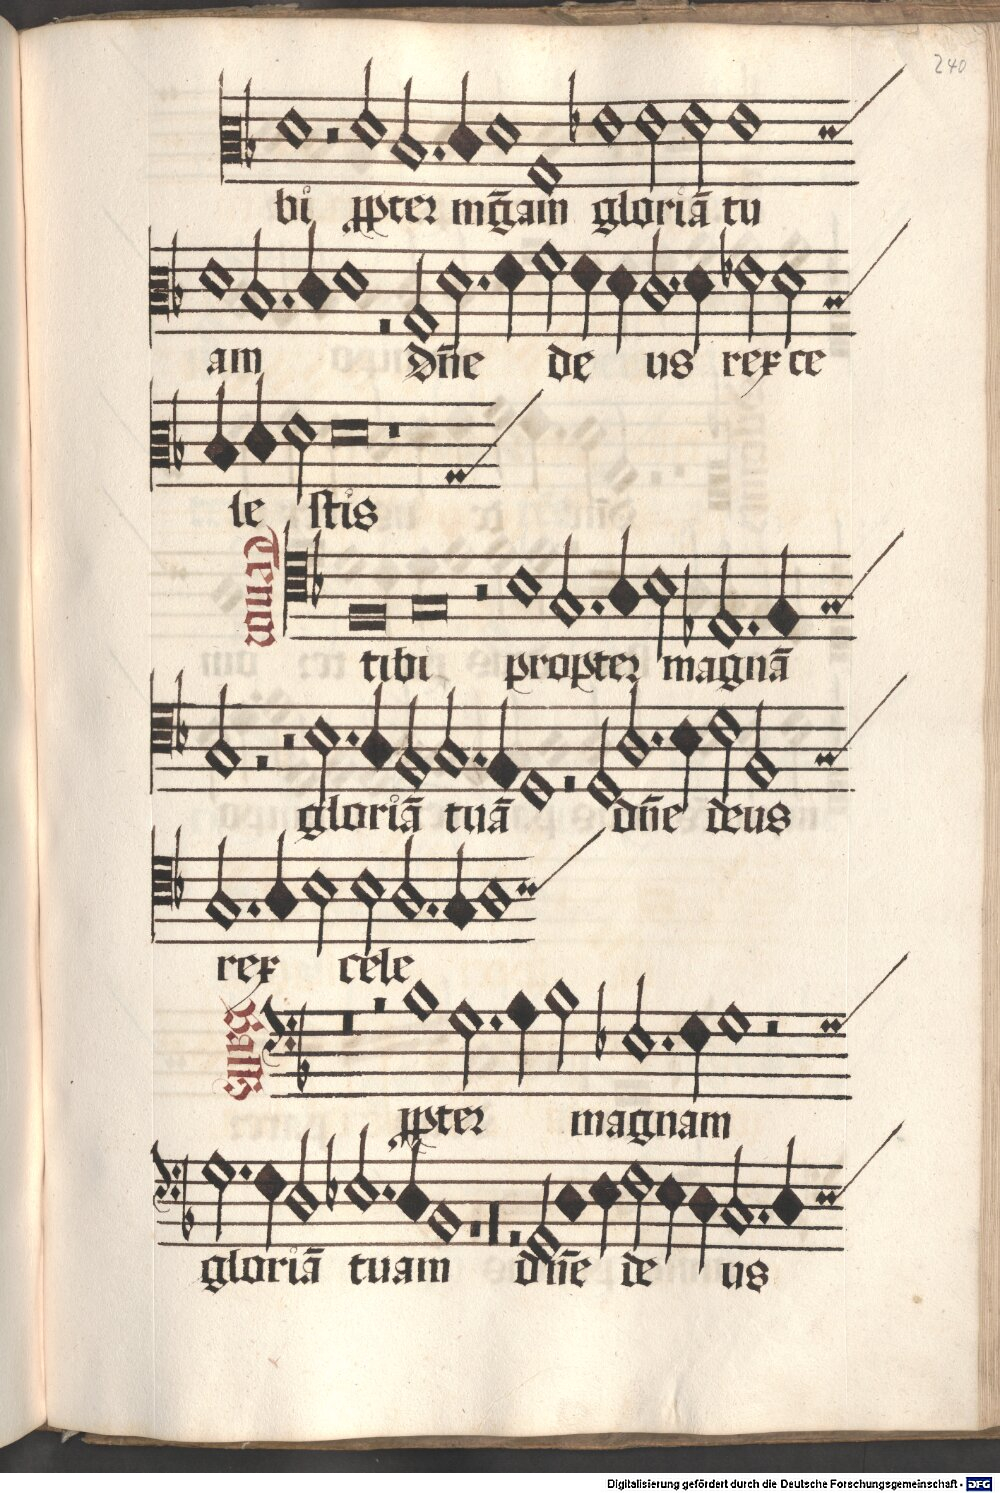 240
bi ꝓpter mḡam gloriā tu
am dn̄e de us rex ce
le stis
Tenor
tibi propter magnā
gloriā tuā dn̄e deus
rex cele
Bassus
ꝓpter magnam
gloriā tuam dn̄e de us
Digitalisierung gefördert durch die Deutsche Forschungsgemeinschaft - DFG